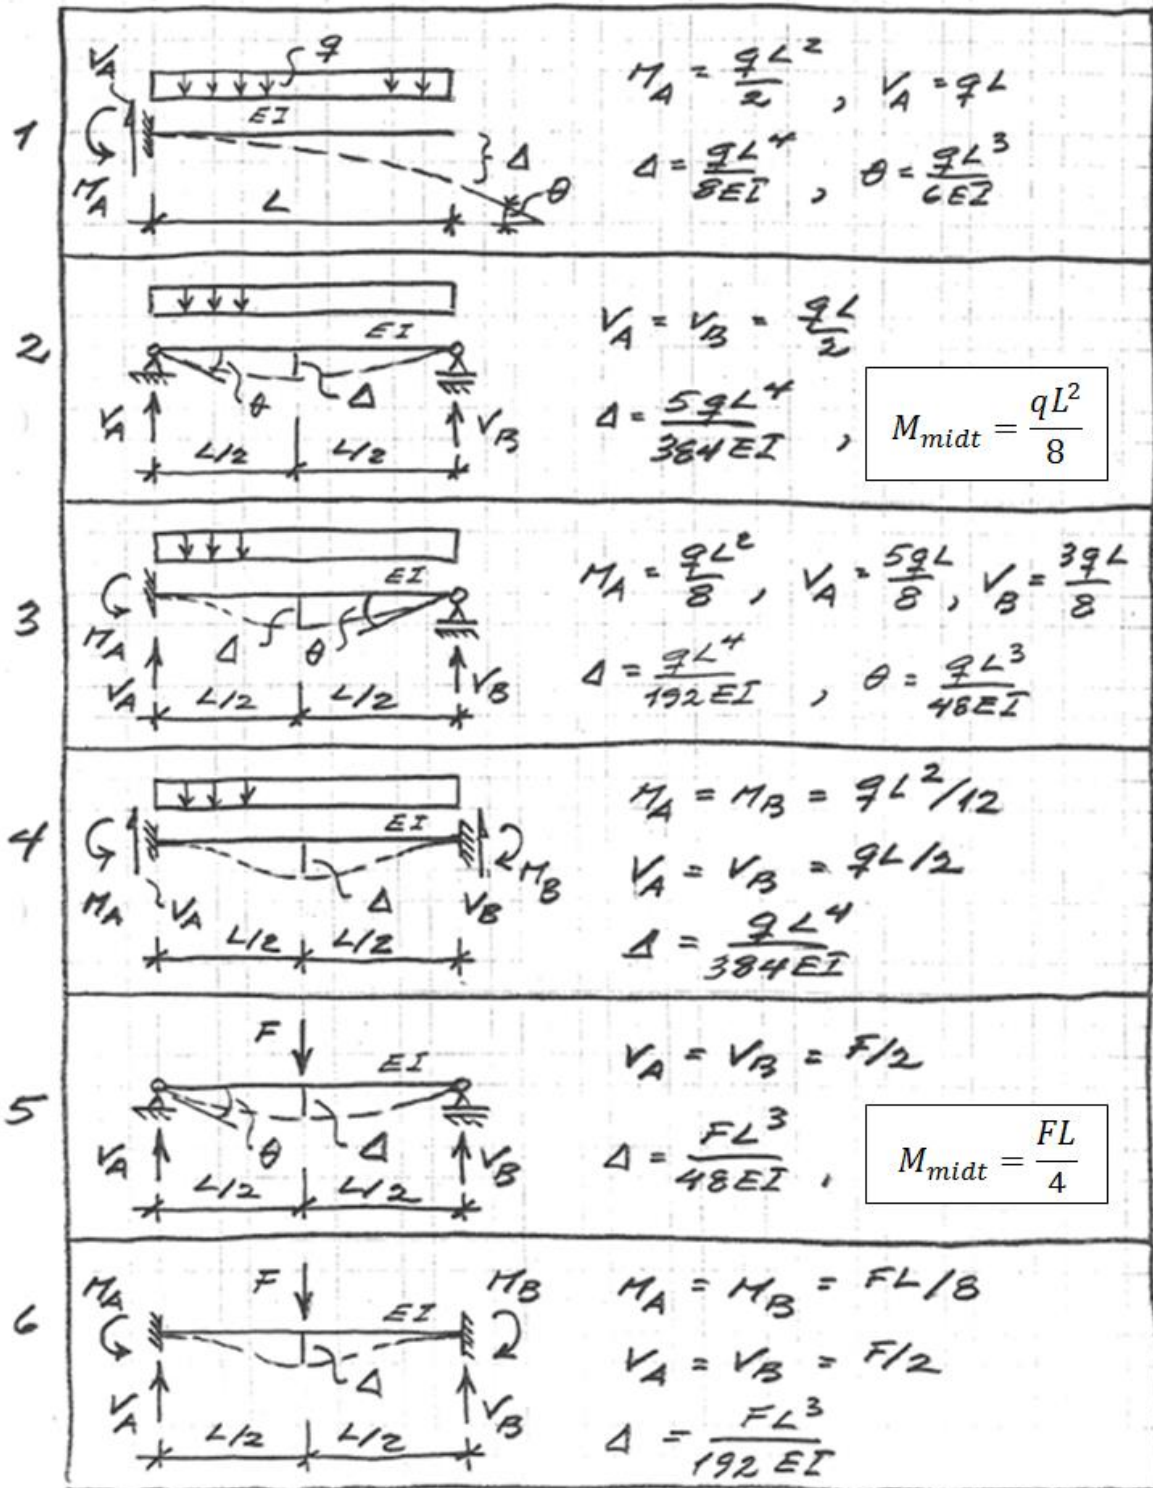 1
V_A
q
EI
M_A
L
Δ
θ
M_A = qL²/2 , V_A = qL
Δ = qL⁴/8EI , θ = qL³/6EI
2
EI
V_A
θ
Δ
V_B
L/2 L/2
V_A = V_B = qL/2
Δ = 5qL⁴/384EI , M_midt = qL²/8
3
EI
M_A
Δ
θ
V_A
V_B
L/2 L/2
M_A = qL²/8 , V_A = 5qL/8 , V_B = 3qL/8
Δ = qL⁴/192EI , θ = qL³/48EI
4
EI
M_A
V_A
Δ
V_B
M_B
L/2 L/2
M_A = M_B = qL²/12
V_A = V_B = qL/2
Δ = qL⁴/384EI
5
F
EI
V_A
θ
Δ
V_B
L/2 L/2
V_A = V_B = F/2
Δ = FL³/48EI , M_midt = FL/4
6
M_A
F
M_B
EI
Δ
V_A
V_B
L/2 L/2
M_A = M_B = FL/8
V_A = V_B = F/2
Δ = FL³/192EI